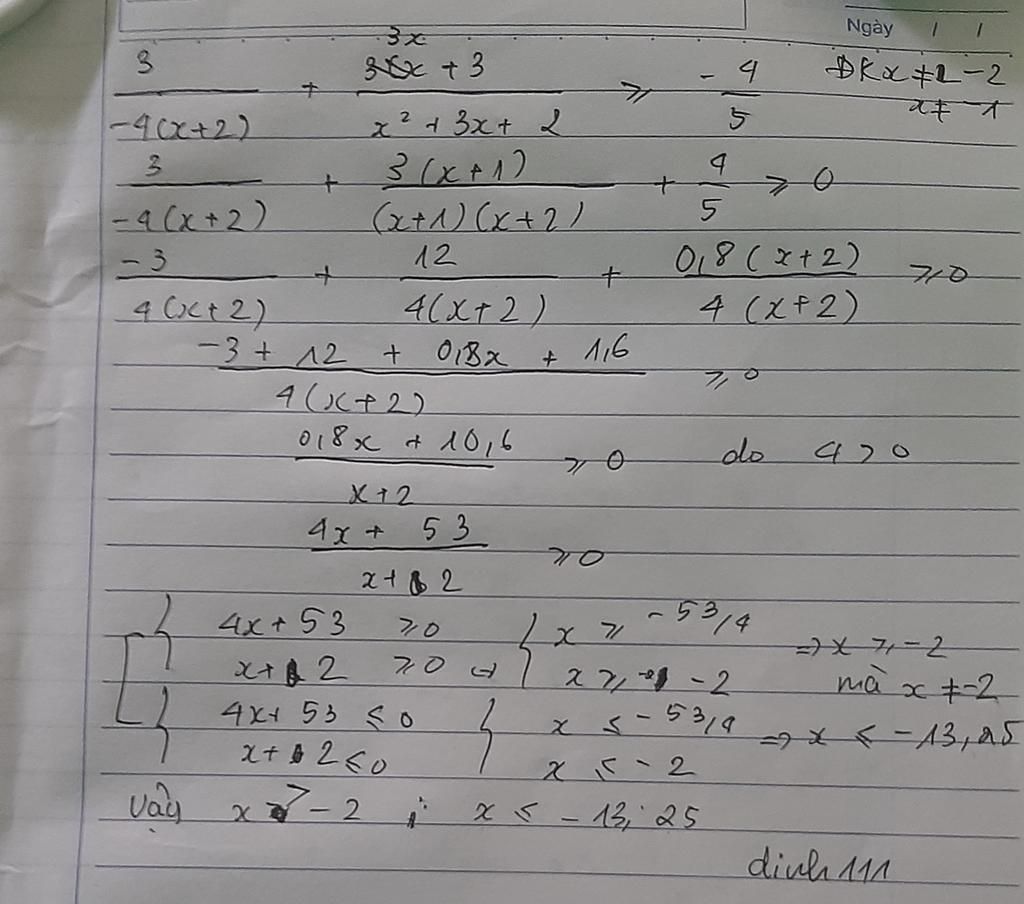 Ngày / /
3/(-4(x+2)) + (3x + 3)/(x² + 3x + 2) ⩾ -4/5 ĐK x ≠ -2
x ≠ -1
3/(-4(x+2)) + 3(x+1)/((x+1)(x+2)) + 4/5 ⩾ 0
-3/(4(x+2)) + 12/(4(x+2)) + 0,8(x+2)/(4(x+2)) ⩾ 0
(-3 + 12 + 0,8x + 1,6)/(4(x+2)) ⩾ 0
(0,8x + 10,6)/(x+2) ⩾ 0 do 4 > 0
(4x + 53)/(x+2) ⩾ 0
4x + 53 ⩾ 0 x ⩾ -53/4 => x ⩾ -2
x + 2 ⩾ 0 x ⩾ -2 mà x ≠ -2
4x + 53 ⩽ 0 x ⩽ -53/4 => x ⩽ -13,25
x + 2 ⩽ 0 x ⩽ -2
Vậy x > -2 ; x ⩽ -13,25
dinh111